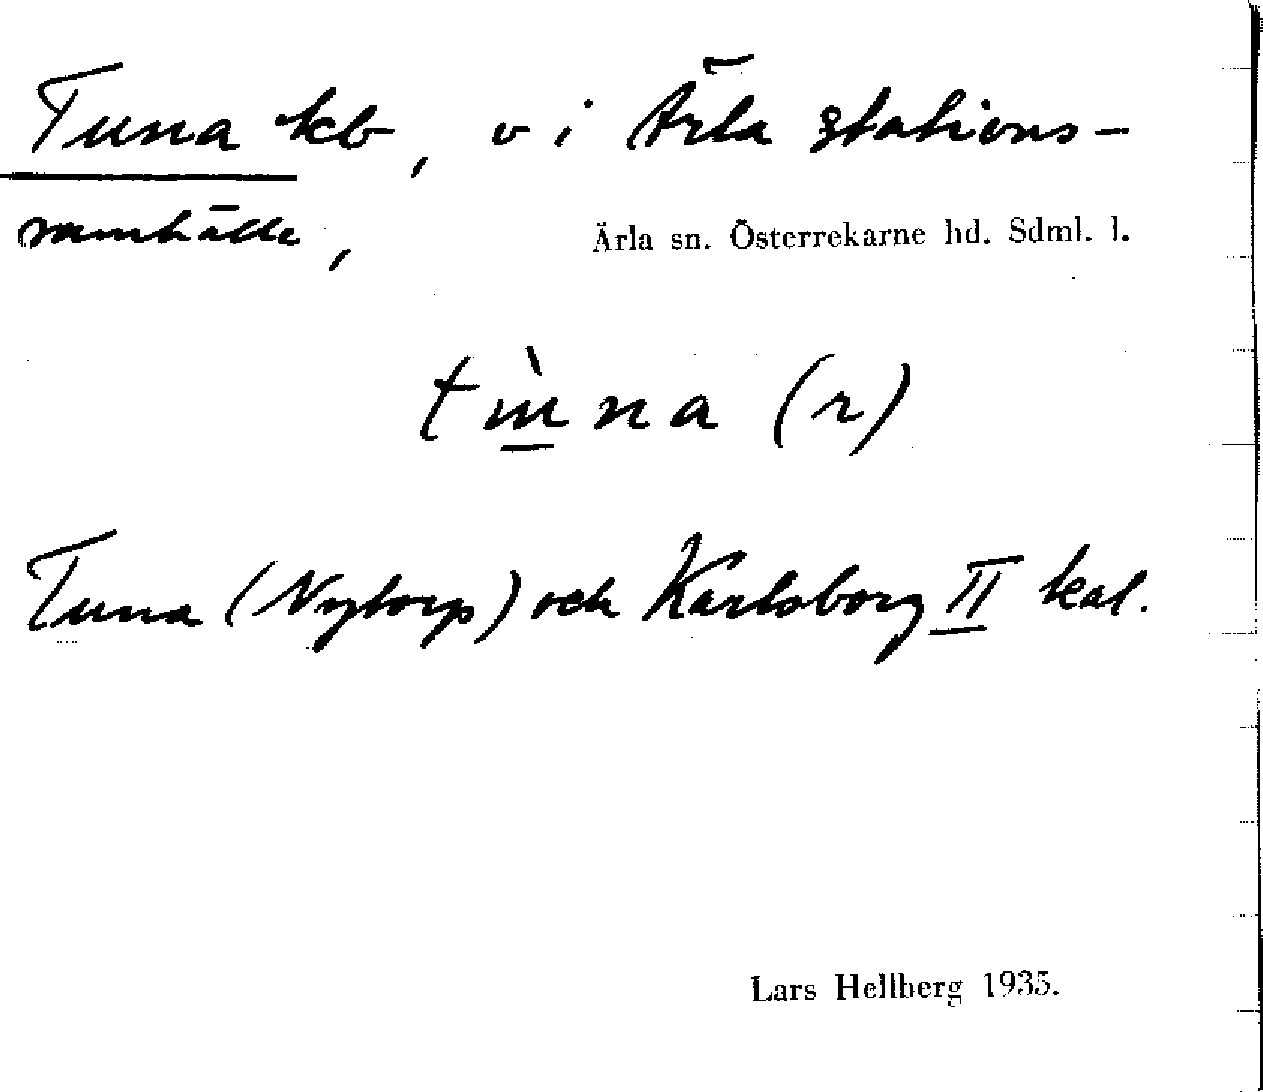 Tuna kb, v i Ärla stations-
samhälle,
Ärla sn. Österrekarne hd. Sdml. l.
na (r)
Tuna (Nytorp) och Karlsborg II kal.
Lars Hellberg 1935.